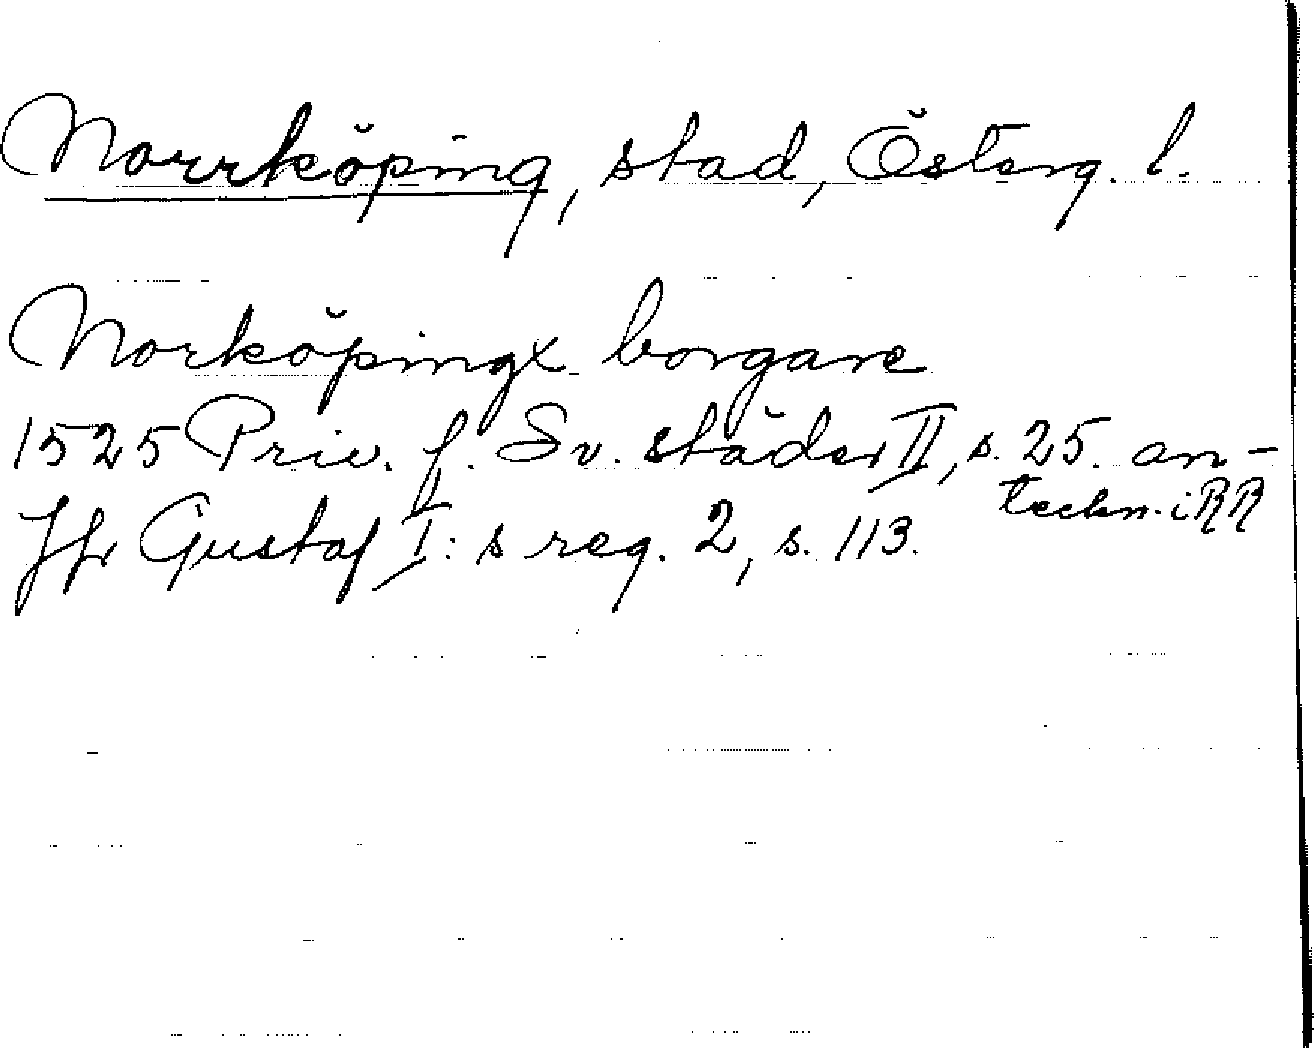 Norrköping, stad, Österg. l.
Norköpingx borgare
1525 Priv. f. Sv. städer II, s. 25. an-
teckn. i RR
Jfr Gustaf I: s reg. 2, s. 113.